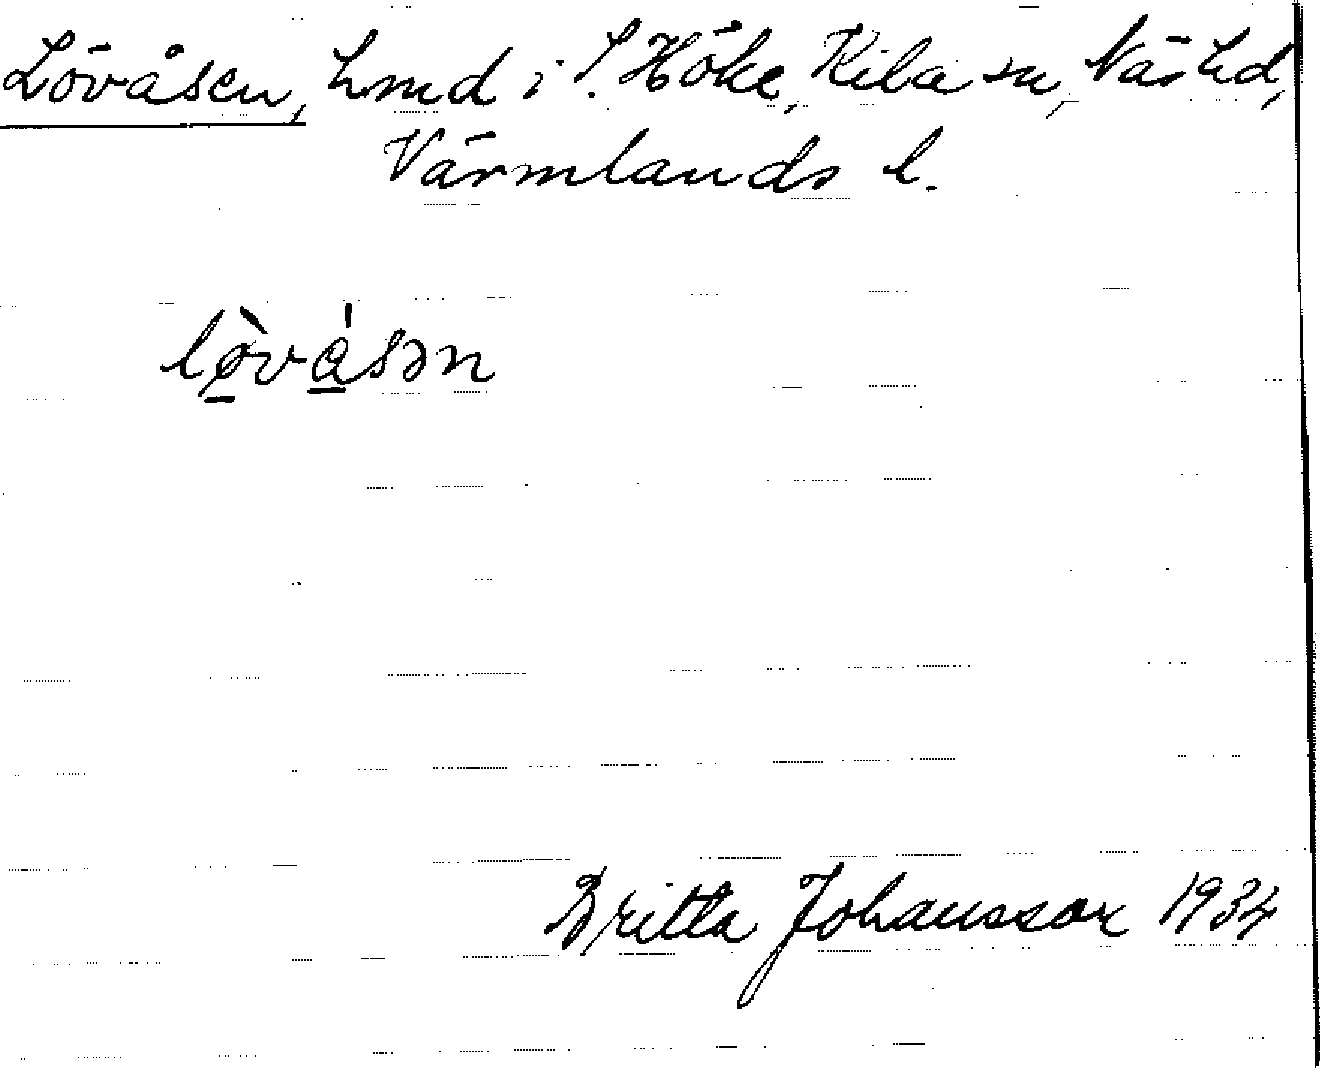 Lövåsen, hmd i S. Höke, Kila sn, Näs hd,
Värmlands l.
lö̀våsən
Britta Johansson 1934